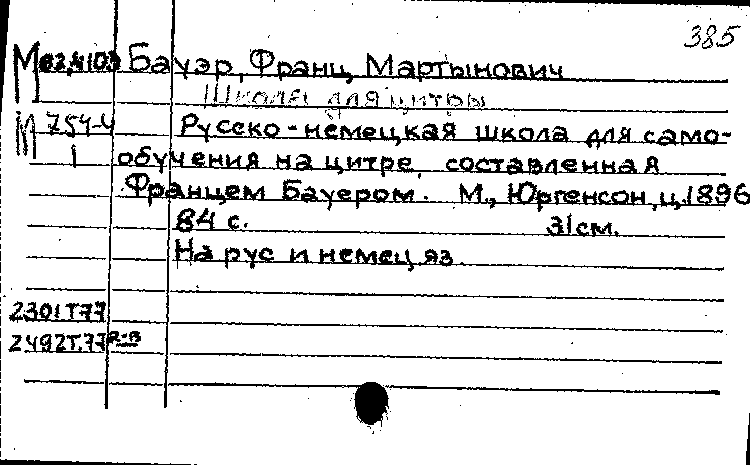 385
М 82,4103 Бауэр, Франц Мартынович
Школа для цитры
М 754-4 Русско-немецкая школа для само-
1 обучения на цитре, составленная
Францем Бауером. М., Юргенсон, ц.1896
84 с. 31см.
На рус и немец яз.
2301Т77
2492Т.77